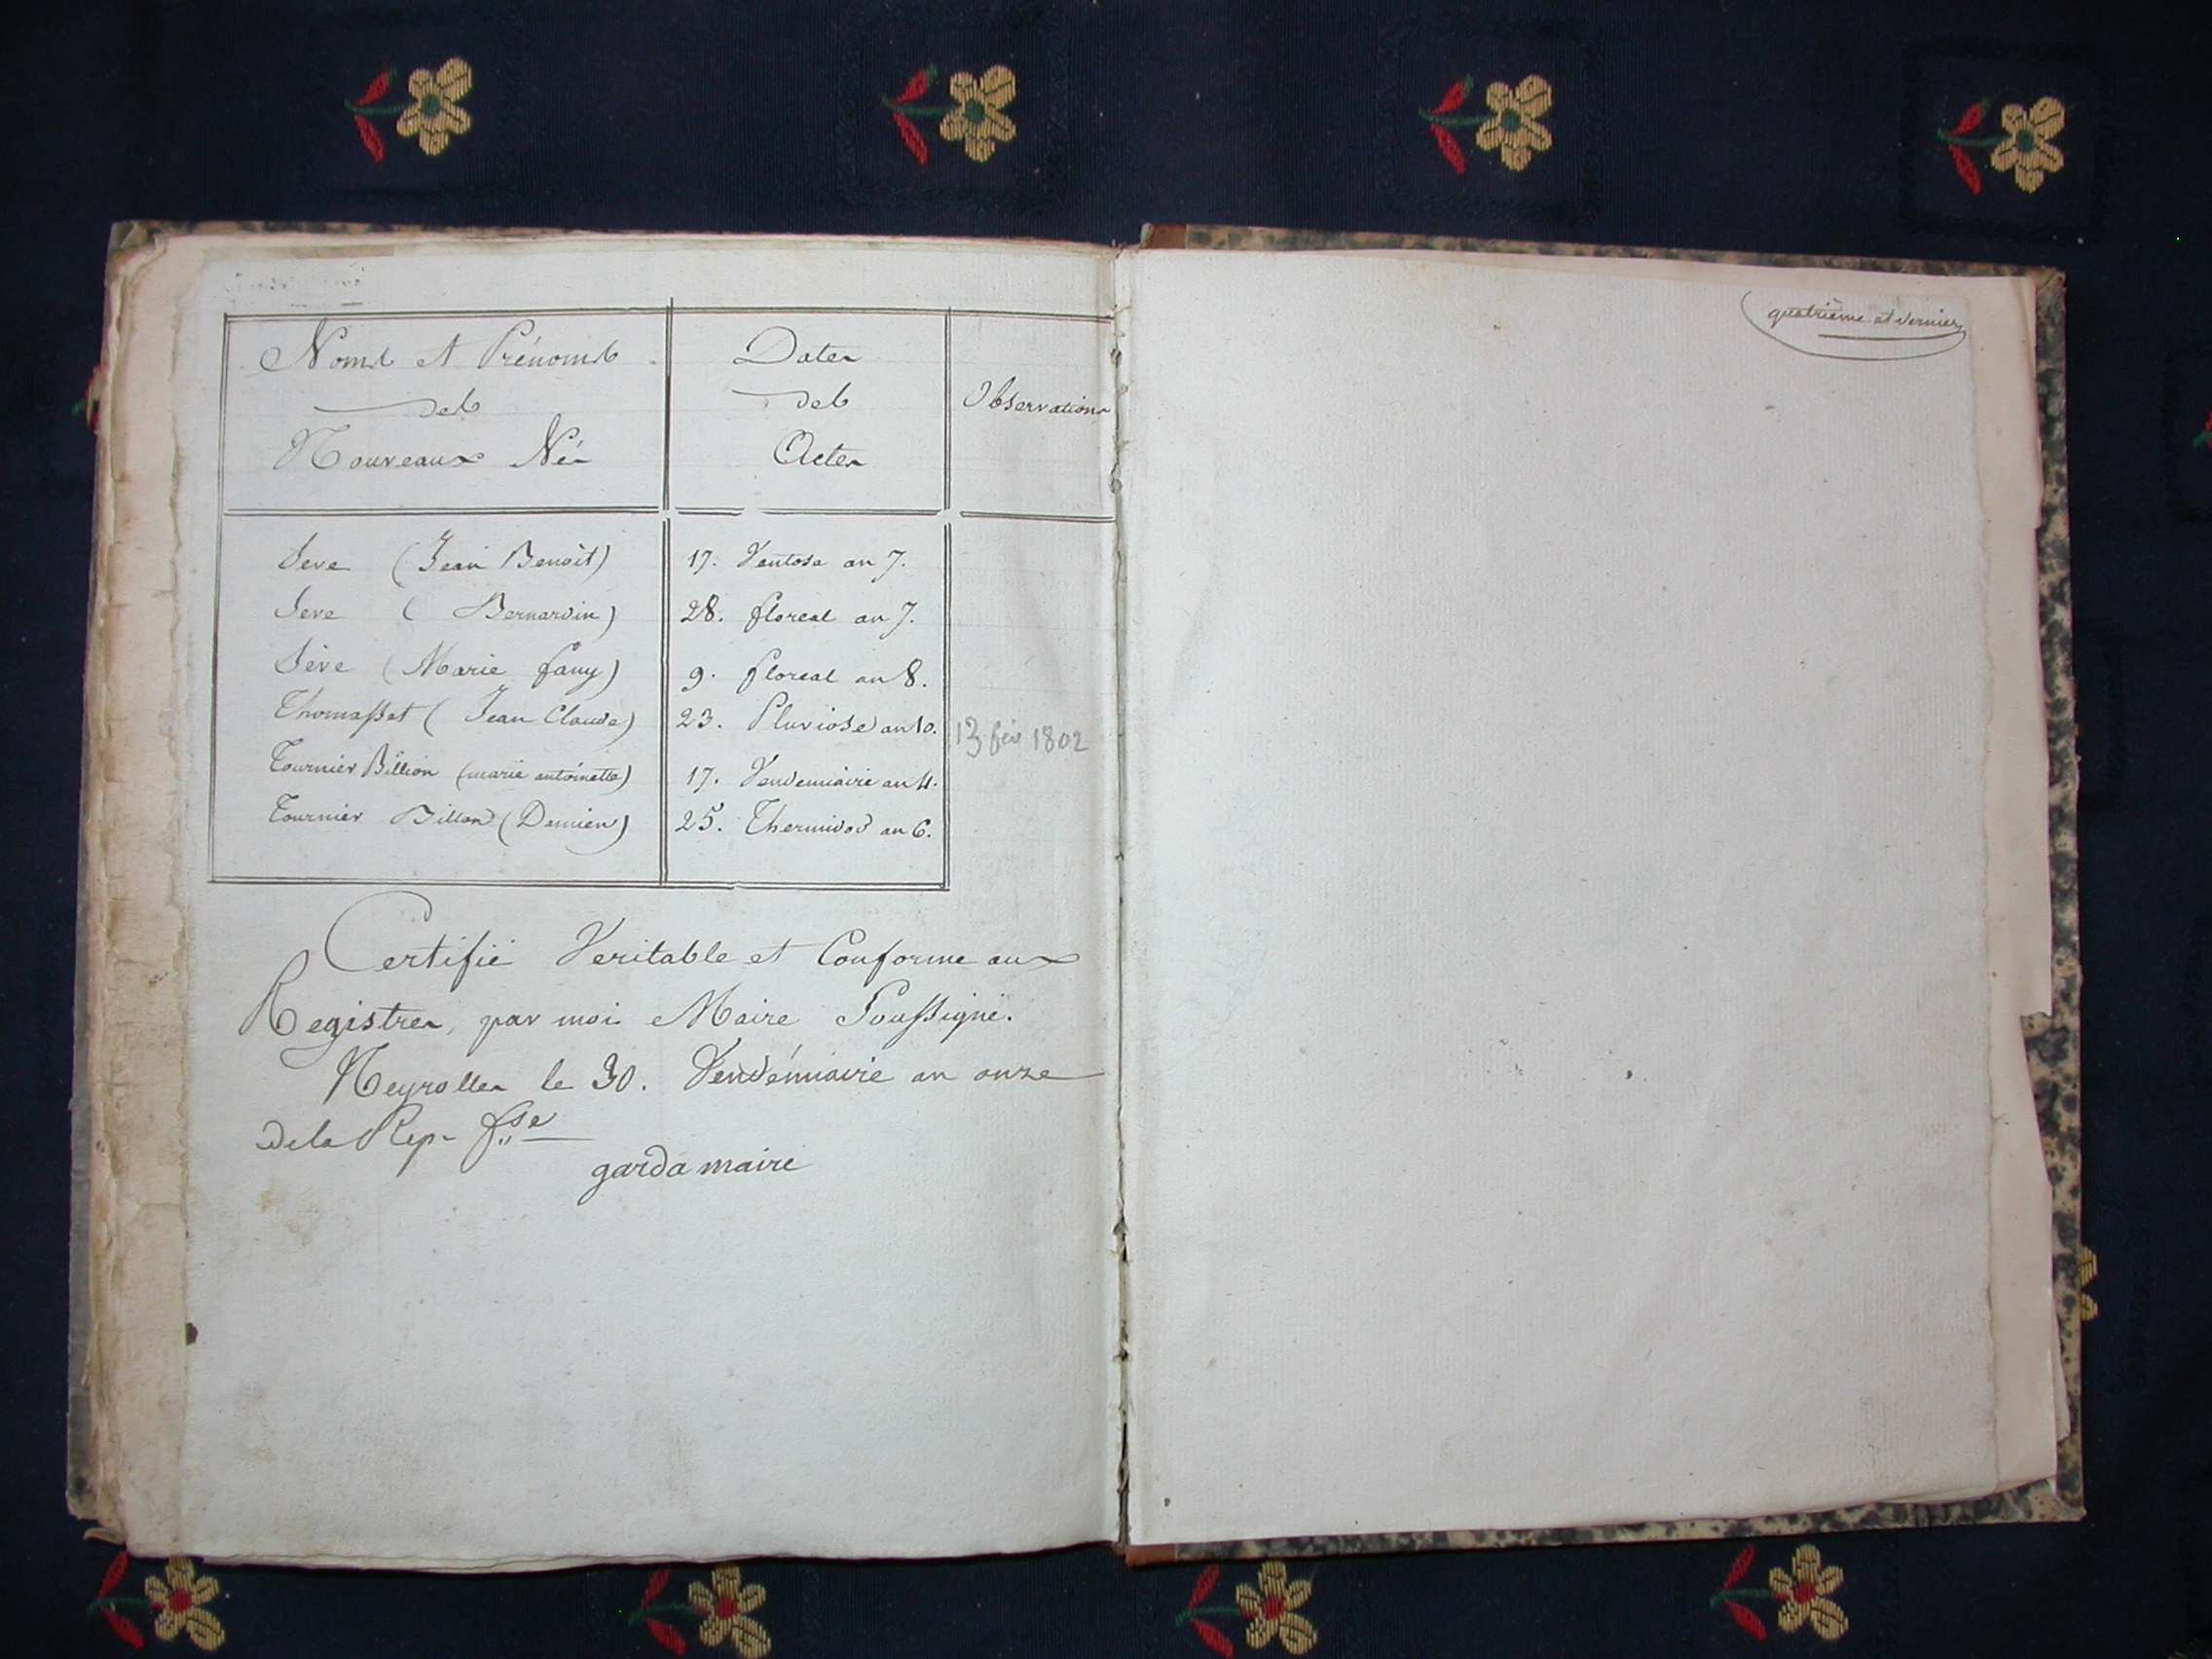 Noms et Prénoms
des
Nouveaux Nés
Dates
des
Actes
Observations
Seve (Jean Benoît) 17. Ventose an 7.
Seve (Bernardin) 28. floreal an 7.
Sève (Marie fany) 9. floreal an 8.
Thomasset (Jean Claude) 23. Pluviose an 10. 13 fév 1802
Tournier Billion (marie antoinette) 17. Vendemiaire an 4.
Tournier Billon (Damien) 25. Thermidod an 6.
Certifié Veritable et Conforme aux
Registres, par moi Maire Soussigné.
Neyrolles le 30. Vendémiaire an onze
de la Rep. fse
garda maire
quatrième et dernier